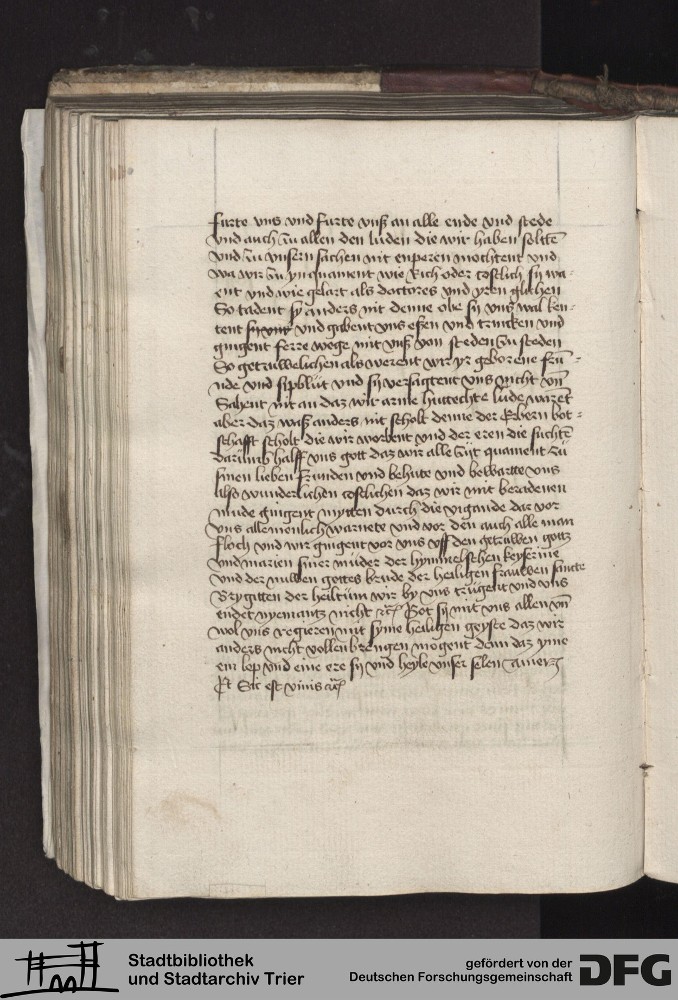 furte vns vnd furte vnß an alle ende vnd stede
vnd auch zu allen den luden die wir haben soltē
vnd zu vnsern sachen nit enperen mochtent vnd
wa wir zu yn quament wie Rich oder costlich sy wa-
rent vnd wie gelart als doctores vnd yren glichen
So tadent sy anders nit denne obe sy vnß wal ken-
tent sy vnd gabent vns eßen vnd trincken vnd
gingent ferre wege mit vnß von steden zu steden
So getruwelichen als werent wir yr geborene frū-
nde vnd sipblut vnd sy versagtent vns nicht vn̄
Sahent nit an daz wir arme lude warēt
aber daz waß anders nit scholt denne der Erbern bot-
schafft scholt die wir worbent vnd der eren die suchtē
darumb halff vns gott daz wir alle zijt quament zu
sinen lieben frunden vnd behute vnd bewartte vns
also wunderlichen costlichen daz wir mit beradenen
mude gingent mytten durch die vigande dar vor
vns allemenlich warnete vnd vor den auch alle man
floch vnd wir gingent vor vns vff den getruwen gottz
vnd marien siner muder der hymmelschen keyserine
vnd der nuwen gottes brude der heiligen frauwen sancte
Brygitten der heiltum wir by vns trugent vnd vns
endet nyemantz nicht etc̄ Got sy mit vns allen vn̄
wol vns regieren mit syme heiligen geyste daz wir
anders nicht vollenbrengen mogent denn daz yme
ein lep vnd eine ere sy vnd heyle vnser selen amen
Et Sic est finis etc̄
Stadtbibliothek
und Stadtarchiv Trier
gefördert von der
Deutschen Forschungsgemeinschaft
DFG